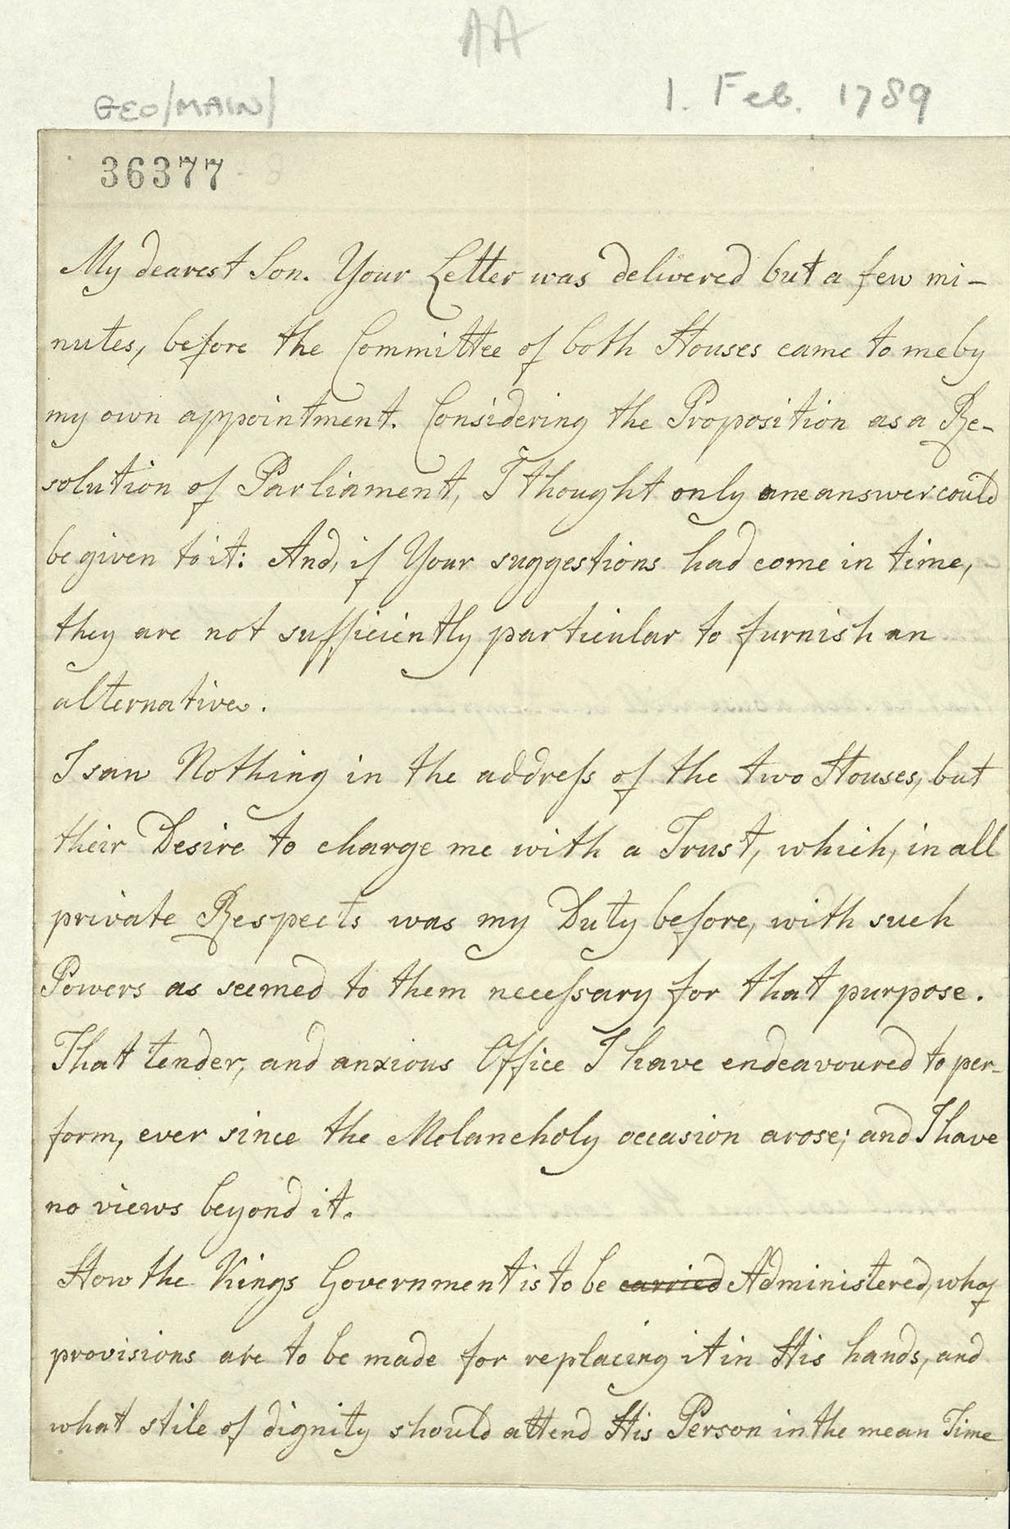 AA
GEO/MAIN/
1. Feb. 1789
36377
My dearest Son. Your Letter was delivered but a few mi-
nutes, before the Committee of both Houses came to me by
my own appointment. Considering the Proposition as a Re-
solution of Parliament, I thought only one answer could
be given to it: And, if Your suggestions had come in time,
they are not sufficiently particular to furnish an
alternative.
I saw Nothing in the address of the two Houses, but
their Desire to charge me with a Trust, which, in all
private Respects was my Duty before, with such
Powers as seemed to them necessary for that purpose.
That tender, and anxious Office I have endeavoured to per-
form, ever since the Melancholy occasion arose; and I have
no views beyond it.
How the Kings Government is to be carried Administered,
provisions are to be made for replacing it in His hands, and
what stile of dignity should attend His Person in the mean Time